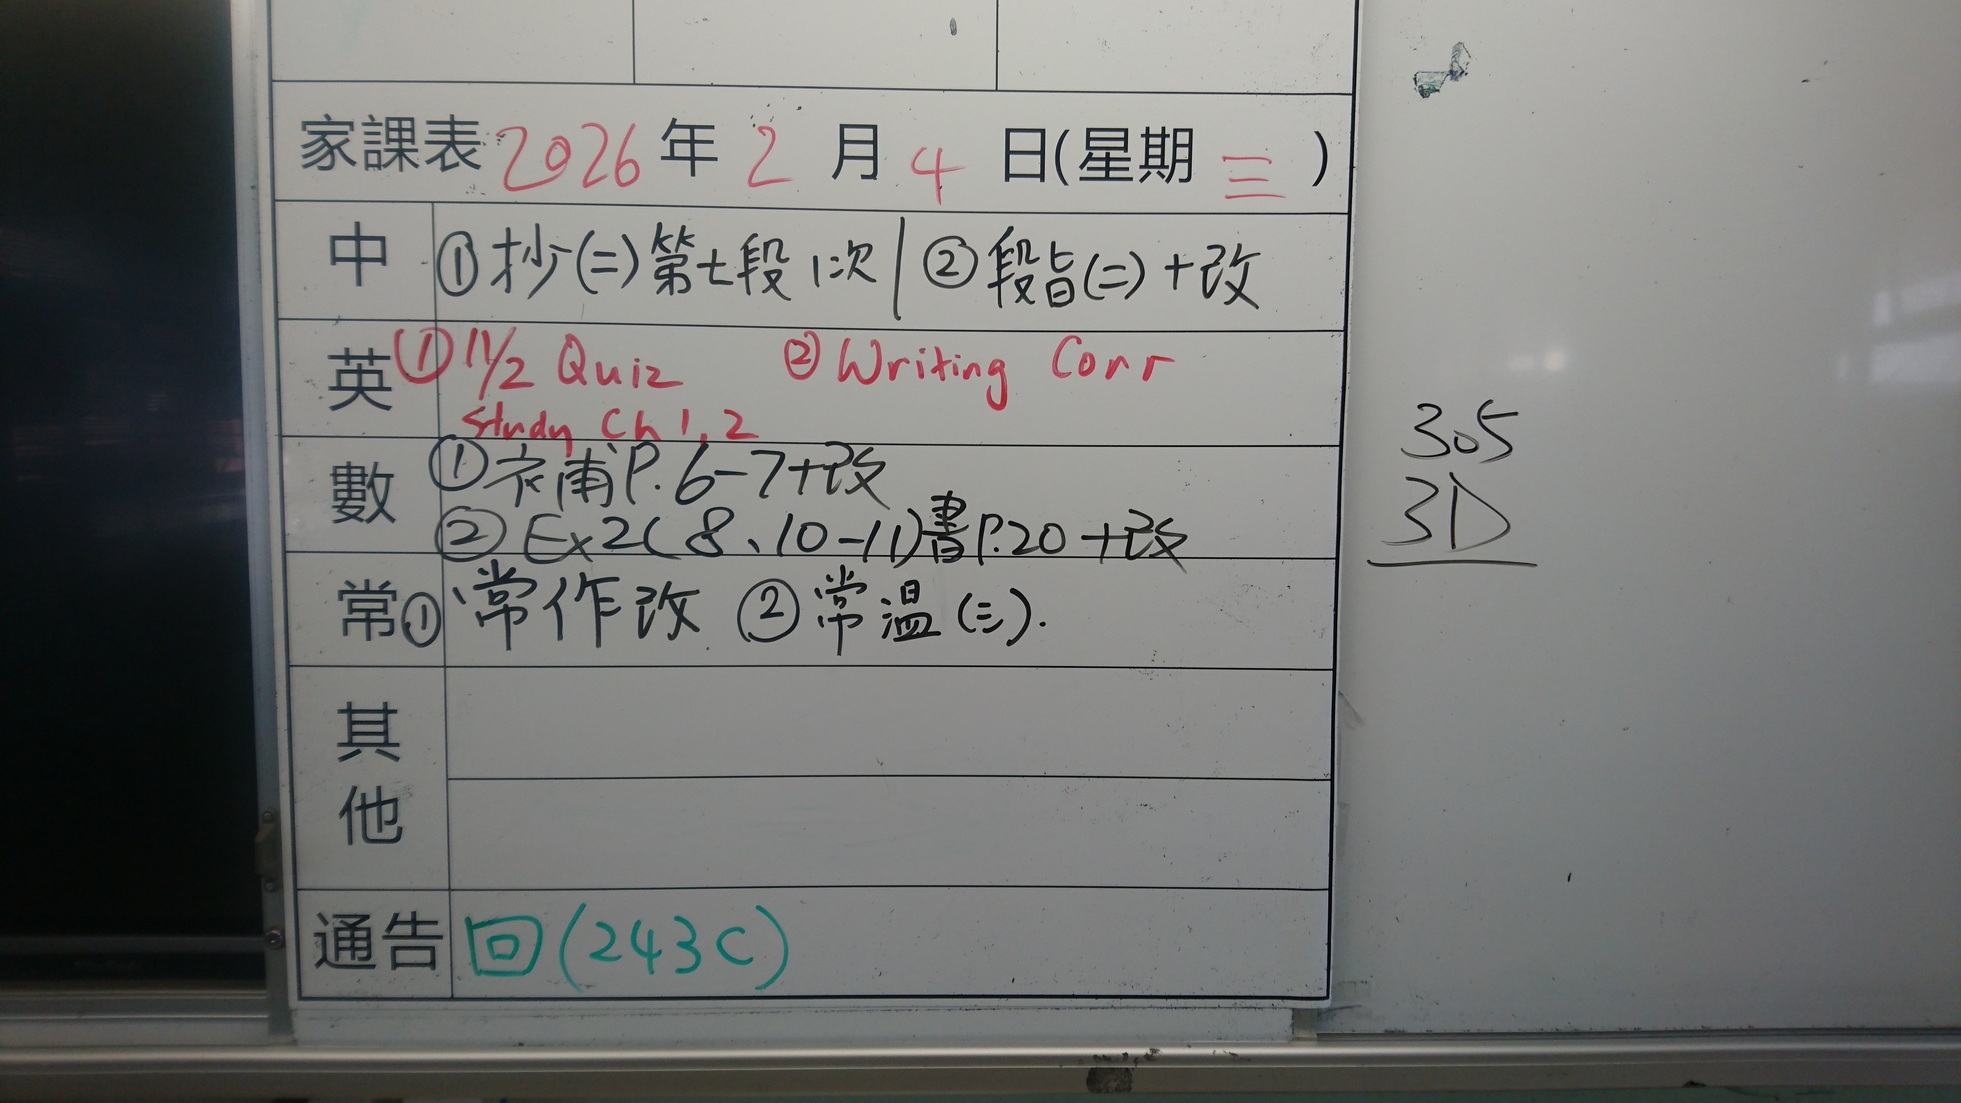 家課表 2026 年 2 月 4 日(星期 三 )
中 ①抄(二)第七段1次 | ②段旨(二)+改
英 ①11/2 Quiz ②Writing Corr
Study Ch 1, 2
數 ①补甫P.6-7+改
②Ex2(8、10-11)書P.20+改
常 ①常作改 ②常温(三).
其他
通告 回(243C)
305
3D